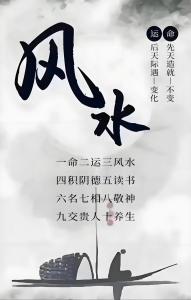 风水
命 先天造就—不变
运 后天际遇—变化
一命二运三风水
四积阴德五读书
六名七相八敬神
九交贵人十养生